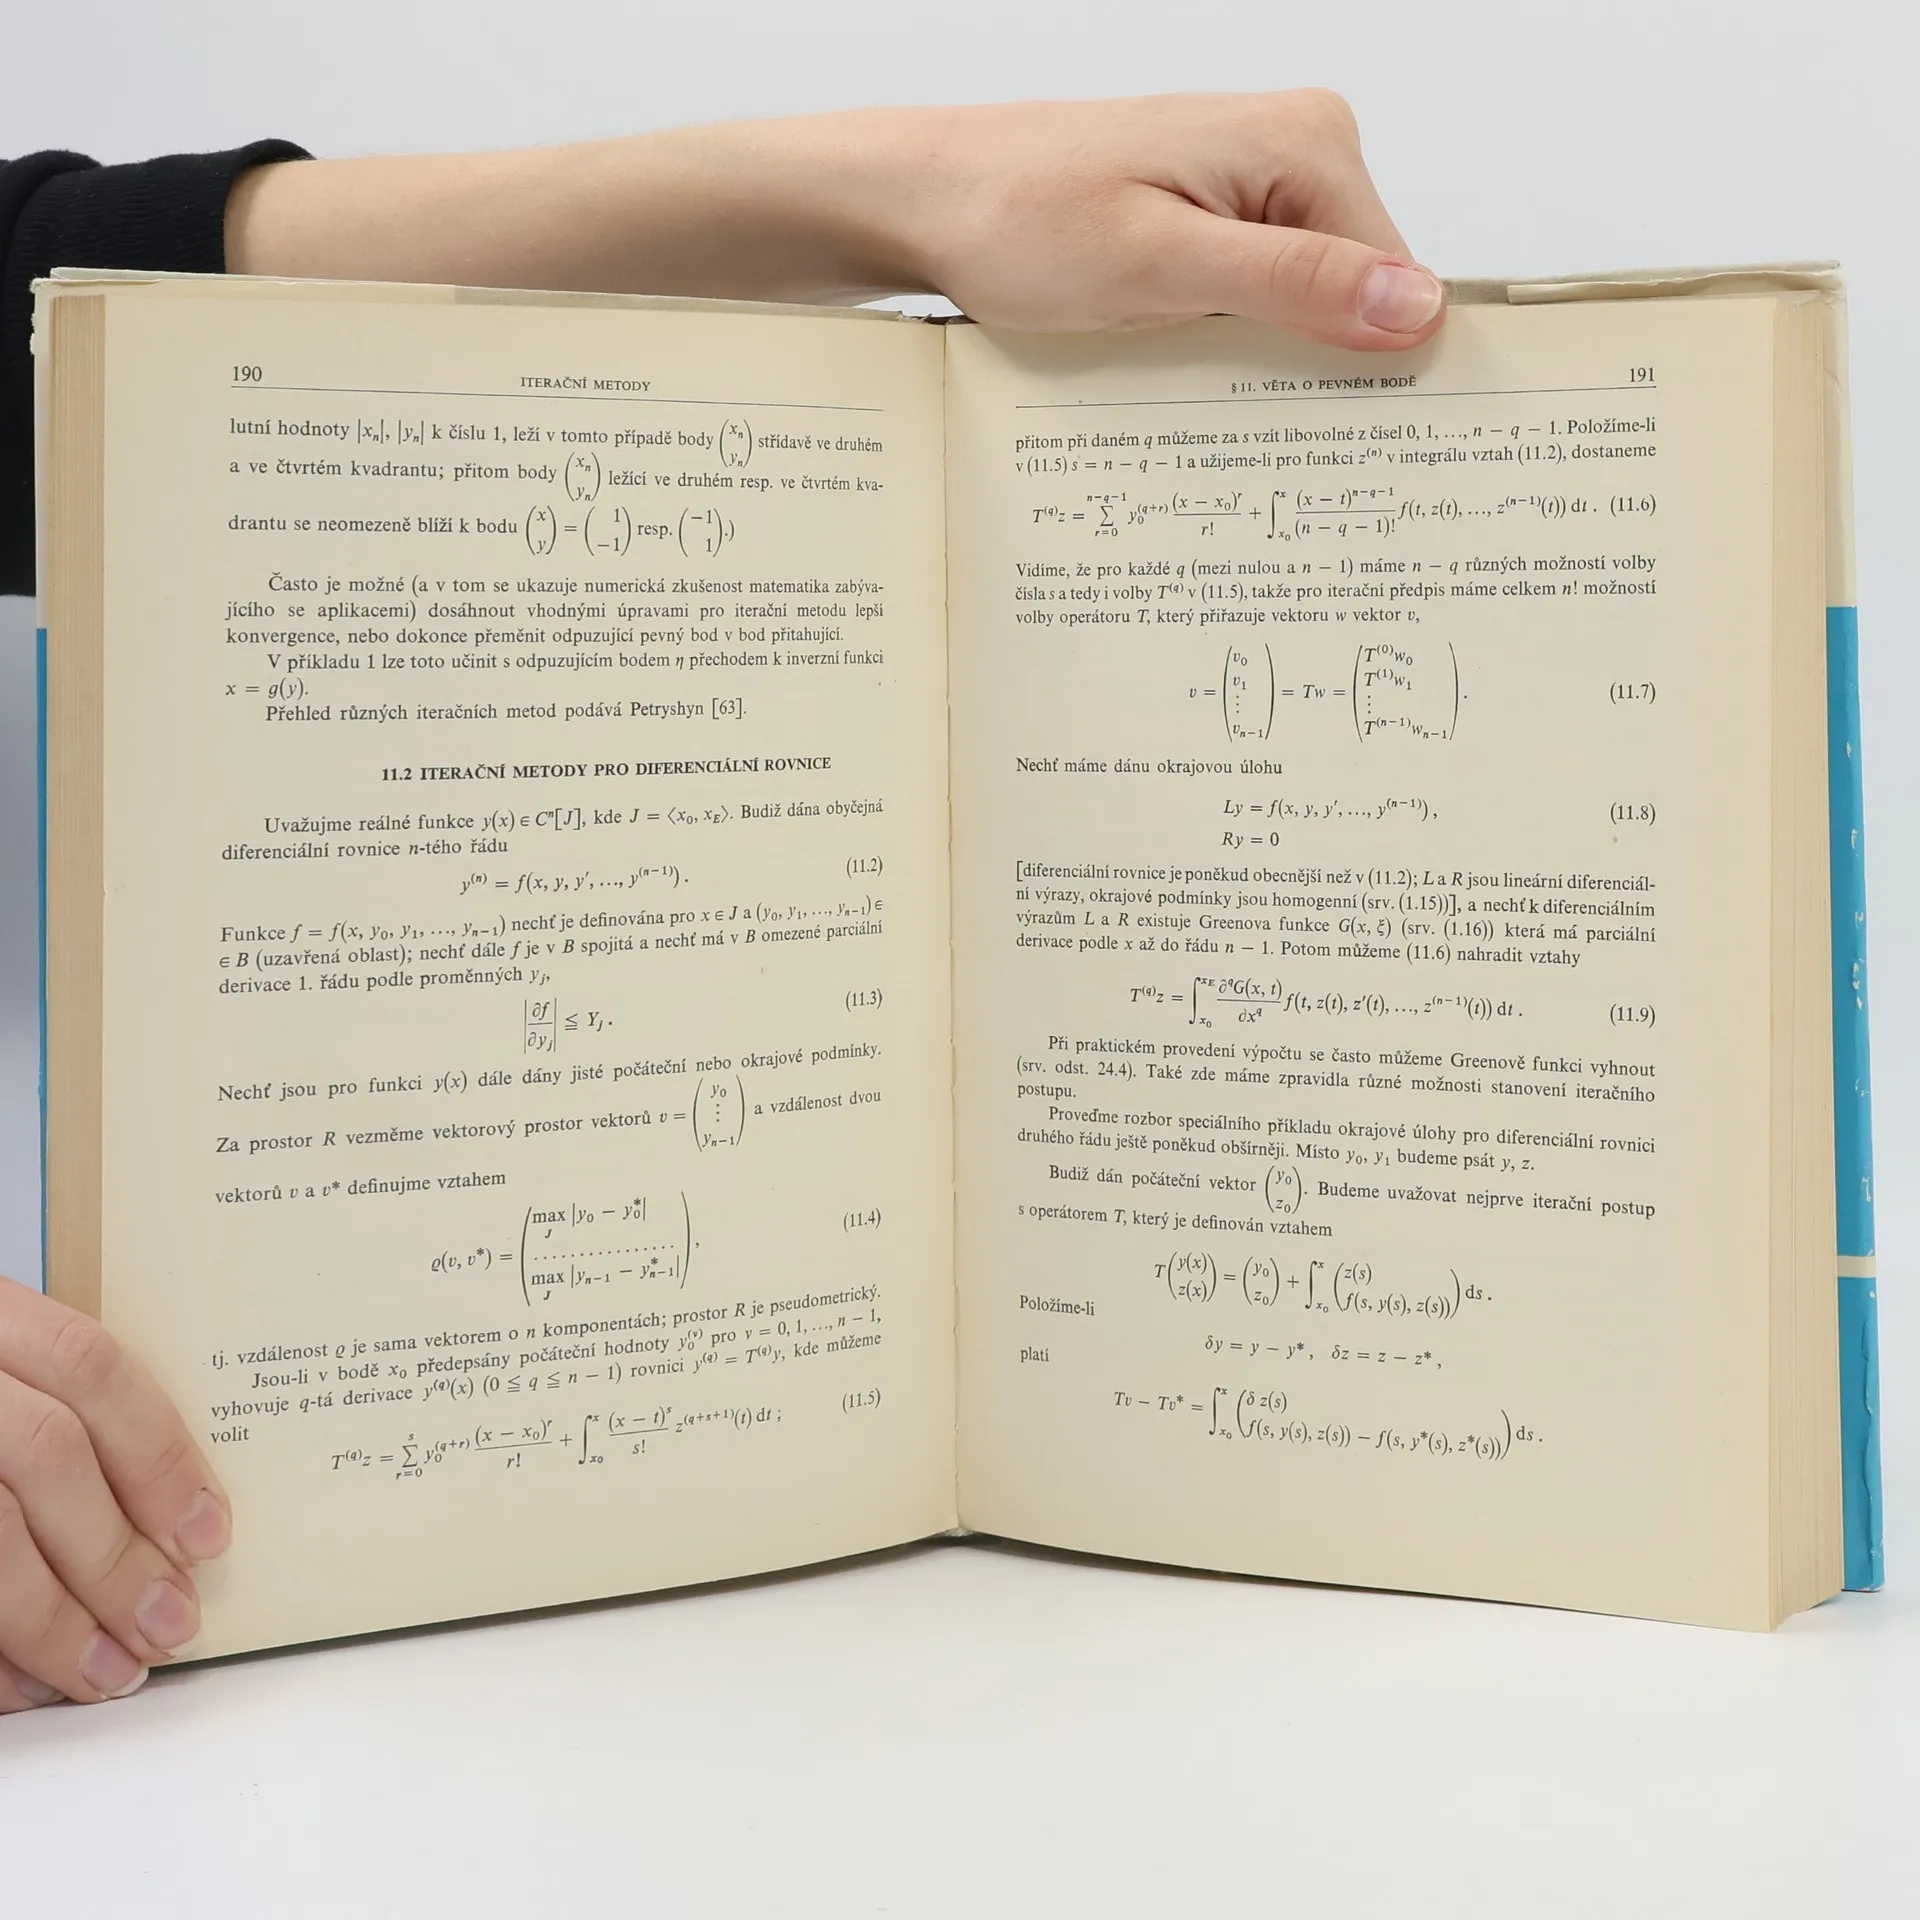 190
ITERAČNÍ METODY
lutní hodnoty |xₙ|, |yₙ| k číslu 1, leží v tomto případě body (xₙ yₙ) střídavě ve druhém
a ve čtvrtém kvadrantu; přitom body (xₙ yₙ) ležící ve druhém resp. ve čtvrtém kva-
drantu se neomezeně blíží k bodu (x y) = (1 −1) resp. (−1 1).)
Často je možné (a v tom se ukazuje numerická zkušenost matematika zabýva-
jícího se aplikacemi) dosáhnout vhodnými úpravami pro iterační metodu lepší
konvergence, nebo dokonce přeměnit odpuzující pevný bod v bod přitahující.
V příkladu 1 lze toto učinit s odpuzujícím bodem η přechodem k inverzní funkci
x = g(y).
Přehled různých iteračních metod podává Petryshyn [63].
11.2 ITERAČNÍ METODY PRO DIFERENCIÁLNÍ ROVNICE
Uvažujme reálné funkce y(x) ∈ Cⁿ[J], kde J = ⟨x₀, x_E⟩. Budiž dána obyčejná
diferenciální rovnice n-tého řádu
y⁽ⁿ⁾ = f(x, y, y′, ..., y⁽ⁿ⁻¹⁾). (11.2)
Funkce f = f(x, y₀, y₁, ..., yₙ₋₁) nechť je definována pro x ∈ J a (y₀, y₁, ..., yₙ₋₁) ∈
∈ B (uzavřená oblast); nechť dále f je v B spojitá a nechť má v B omezené parciální
derivace 1. řádu podle proměnných yⱼ,
|∂f/∂yⱼ| ≦ Yⱼ. (11.3)
Nechť jsou pro funkci y(x) dále dány jisté počáteční nebo okrajové podmínky.
Za prostor R vezměme vektorový prostor vektorů v = (y₀ ⋮ yₙ₋₁) a vzdálenost dvou
vektorů v a v* definujme vztahem
ϱ(v, v*) = (max_J |y₀ − y₀*| ................ max_J |yₙ₋₁ − yₙ₋₁*|), (11.4)
tj. vzdálenost ϱ je sama vektorem o n komponentách; prostor R je pseudometrický.
Jsou-li v bodě x₀ předepsány počáteční hodnoty y₀⁽ᵛ⁾ pro ν = 0, 1, ..., n − 1,
vyhovuje q-tá derivace y⁽q⁾(x) (0 ≦ q ≦ n − 1) rovnici y⁽q⁾ = T⁽q⁾y, kde můžeme
volit
T⁽q⁾z = ∑_{r=0}^{s} y₀^(q+r) (x − x₀)^r / r! + ∫_{x₀}^{x} (x − t)^s / s! z^(q+s+1)(t) dt; (11.5)
§ 11. VĚTA O PEVNÉM BODĚ
191
přitom při daném q můžeme za s vzít libovolné z čísel 0, 1, ..., n − q − 1. Položíme-li
v (11.5) s = n − q − 1 a užijeme-li pro funkci z⁽ⁿ⁾ v integrálu vztah (11.2), dostaneme
T⁽q⁾z = ∑_{r=0}^{n−q−1} y₀^(q+r) (x − x₀)^r / r! + ∫_{x₀}^{x} (x − t)^{n−q−1} / (n − q − 1)! f(t, z(t), ..., z⁽ⁿ⁻¹⁾(t)) dt. (11.6)
Vidíme, že pro každé q (mezi nulou a n − 1) máme n − q různých možností volby
čísla s a tedy i volby T⁽q⁾ v (11.5), takže pro iterační předpis máme celkem n! možností
volby operátoru T, který přiřazuje vektoru w vektor v,
v = (v₀ v₁ ⋮ vₙ₋₁) = Tw = (T⁽⁰⁾w₀ T⁽¹⁾w₁ ⋮ T⁽ⁿ⁻¹⁾wₙ₋₁). (11.7)
Nechť máme dánu okrajovou úlohu
Ly = f(x, y, y′, ..., y⁽ⁿ⁻¹⁾), (11.8)
Ry = 0
[diferenciální rovnice je poněkud obecnější než v (11.2); L a R jsou lineární diferenciál-
ní výrazy, okrajové podmínky jsou homogenní (srv. (1.15))], a nechť k diferenciálním
výrazům L a R existuje Greenova funkce G(x, ξ) (srv. (1.16)) která má parciální
derivace podle x až do řádu n − 1. Potom můžeme (11.6) nahradit vztahy
T⁽q⁾z = ∫_{x₀}^{x_E} ∂^qG(x, t)/∂x^q f(t, z(t), z′(t), ..., z⁽ⁿ⁻¹⁾(t)) dt. (11.9)
Při praktickém provedení výpočtu se často můžeme Greenově funkci vyhnout
(srv. odst. 24.4). Také zde máme zpravidla různé možnosti stanovení iteračního
postupu.
Proveďme rozbor speciálního příkladu okrajové úlohy pro diferenciální rovnici
druhého řádu ještě poněkud obšírněji. Místo y₀, y₁ budeme psát y, z.
Budiž dán počáteční vektor (y₀ z₀). Budeme uvažovat nejprve iterační postup
s operátorem T, který je definován vztahem
T(y(x) z(x)) = (y₀ z₀) + ∫_{x₀}^{x} (z(s) f(s, y(s), z(s))) ds.
Položíme-li
δy = y − y*, δz = z − z*,
platí
Tv − Tv* = ∫_{x₀}^{x} (δ z(s) f(s, y(s), z(s)) − f(s, y*(s), z*(s))) ds.